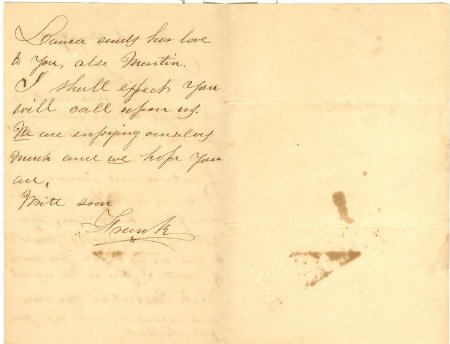 Laura sends her love
to you, also Martin.
I shall expect you
will call upon us.
We are enjoying ourselves
much and we hope you
are.
Write soon
Frank